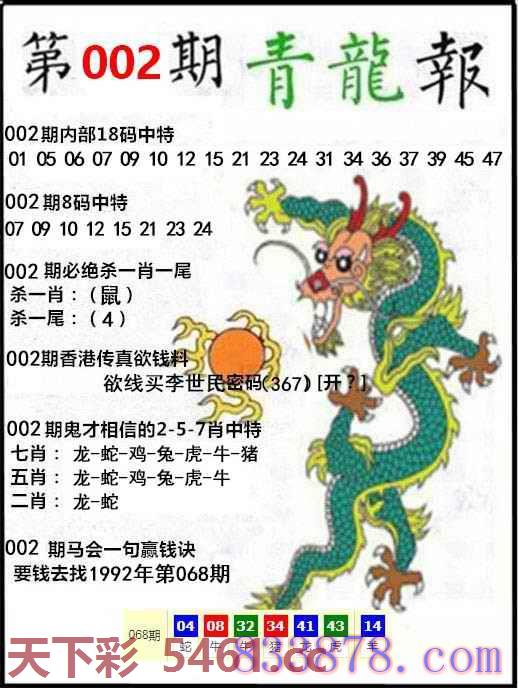 第002期 青龍報
002期内部18码中特
01 05 06 07 09 10 12 15 21 23 24 31 34 36 37 39 45 47
002期8码中特
07 09 10 12 15 21 23 24
002 期必绝杀一肖一尾
杀一肖：（鼠）
杀一尾：（4）
002期香港传真欲钱料
欲线买李世民密码(367)[开？]
002期鬼才相信的2-5-7肖中特
七肖： 龙-蛇-鸡-兔-虎-牛-猪
五肖： 龙-蛇-鸡-兔-虎-牛
二肖： 龙-蛇
002 期马会一句赢钱诀
要钱去找1992年第068期
068期 04 08 32 34 41 43 14
蛇 牛 牛 猪 龙 虎 羊
天下彩 5461.cc
833878.com